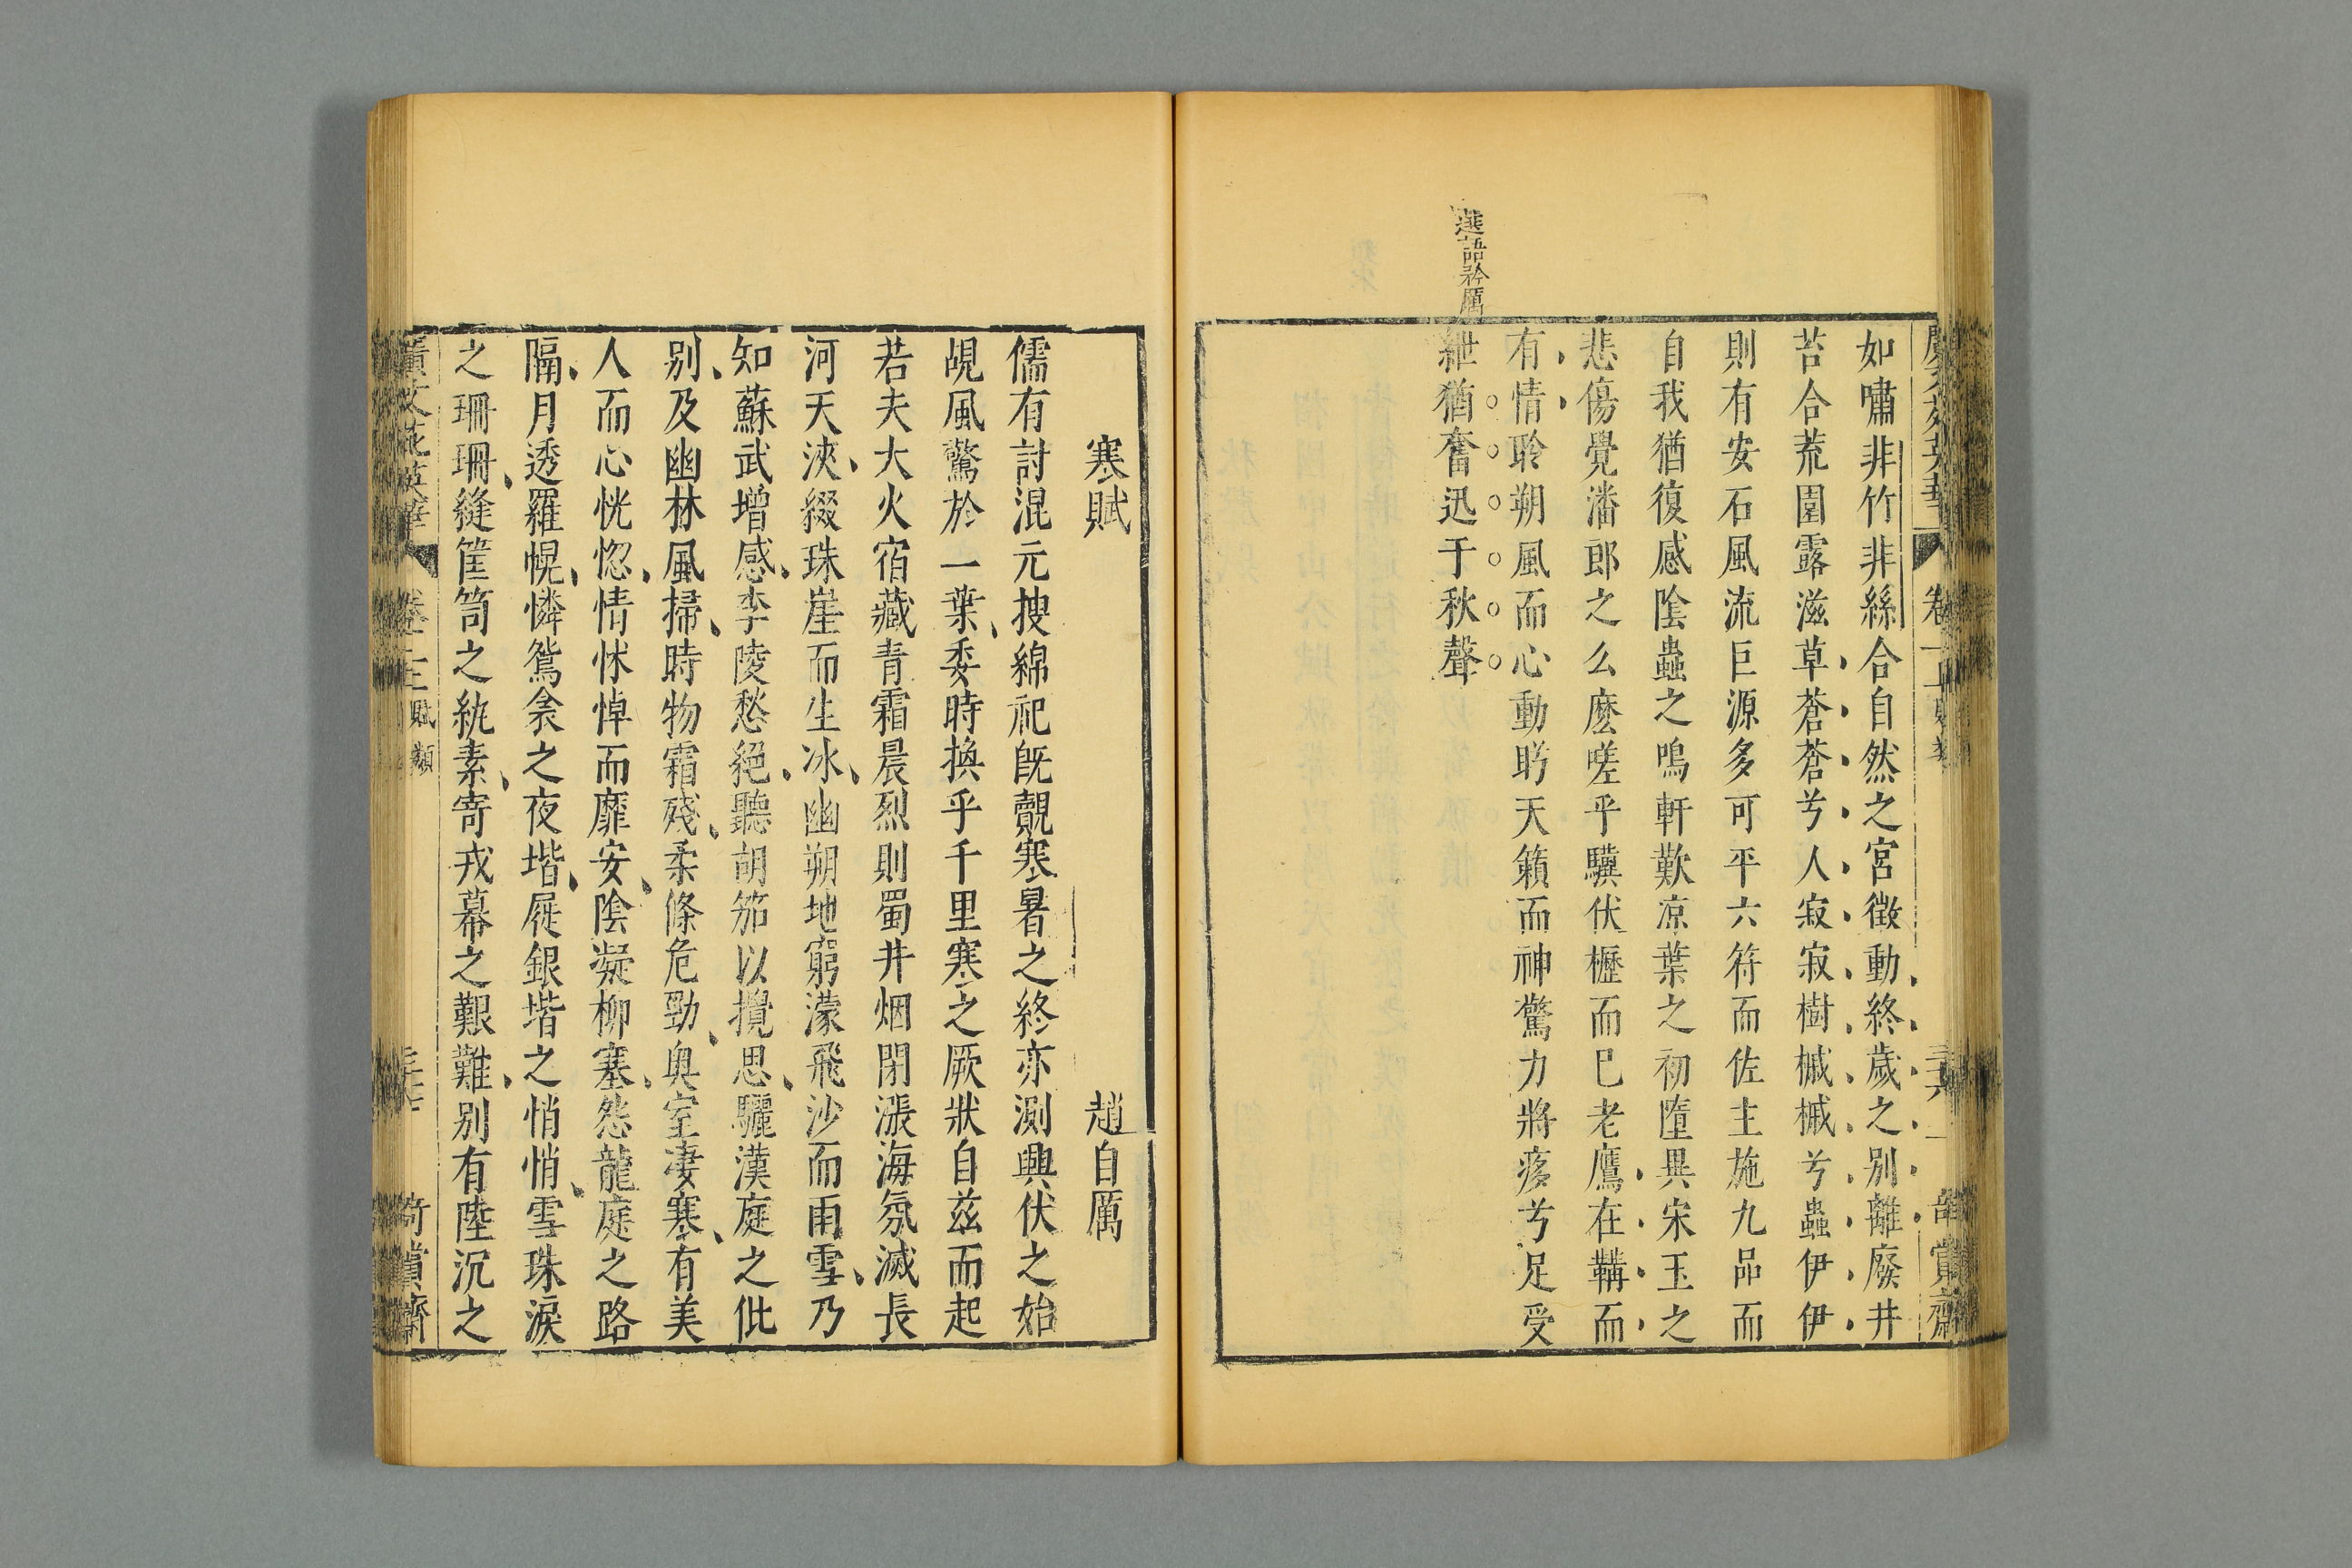 選語矜厲
如嘯非竹非絲合自然之宮徵動終歲之別離廢井
苔合荒園露滋草蒼蒼兮人寂寂樹槭槭兮蟲伊伊
則有安石風流巨源多可平六符而佐主施九品而
自我猶復感陰蟲之鳴軒歎凉葉之初墮異宋玉之
悲傷覺潘郎之么麼嗟乎驥伏櫪而已老鷹在鞲而
有情聆朔風而心動眄天籟而神驚力將痑兮足受
紲猶奮迅于秋聲
寒賦
趙自厲
儒有討混元搜綿祀旣覿寒暑之終亦測興伏之始
覘風驚於一葉委時換乎千里寒之厥狀自茲而起
若夫大火宿藏青霜晨烈則蜀井烟閉漲海氛滅長
河天浹綴珠崖而生冰幽朔地窮濛飛沙而雨雪乃
知蘇武增感李陵愁絕聽胡笳以攪思驪漢庭之仳
別及幽林風掃時物霜殘柔條危勁奥室凄寒有美
人而心恍惚情怵悼而靡安陰凝柳塞怨龍庭之路
隔月透羅幌憐鴛衾之夜堦屣銀堦之悄悄雪珠淚
之珊珊縫筐笥之紈素寄戎幕之艱難別有陸沉之
廣文苑英華 卷一上 賦類 奇賞齋